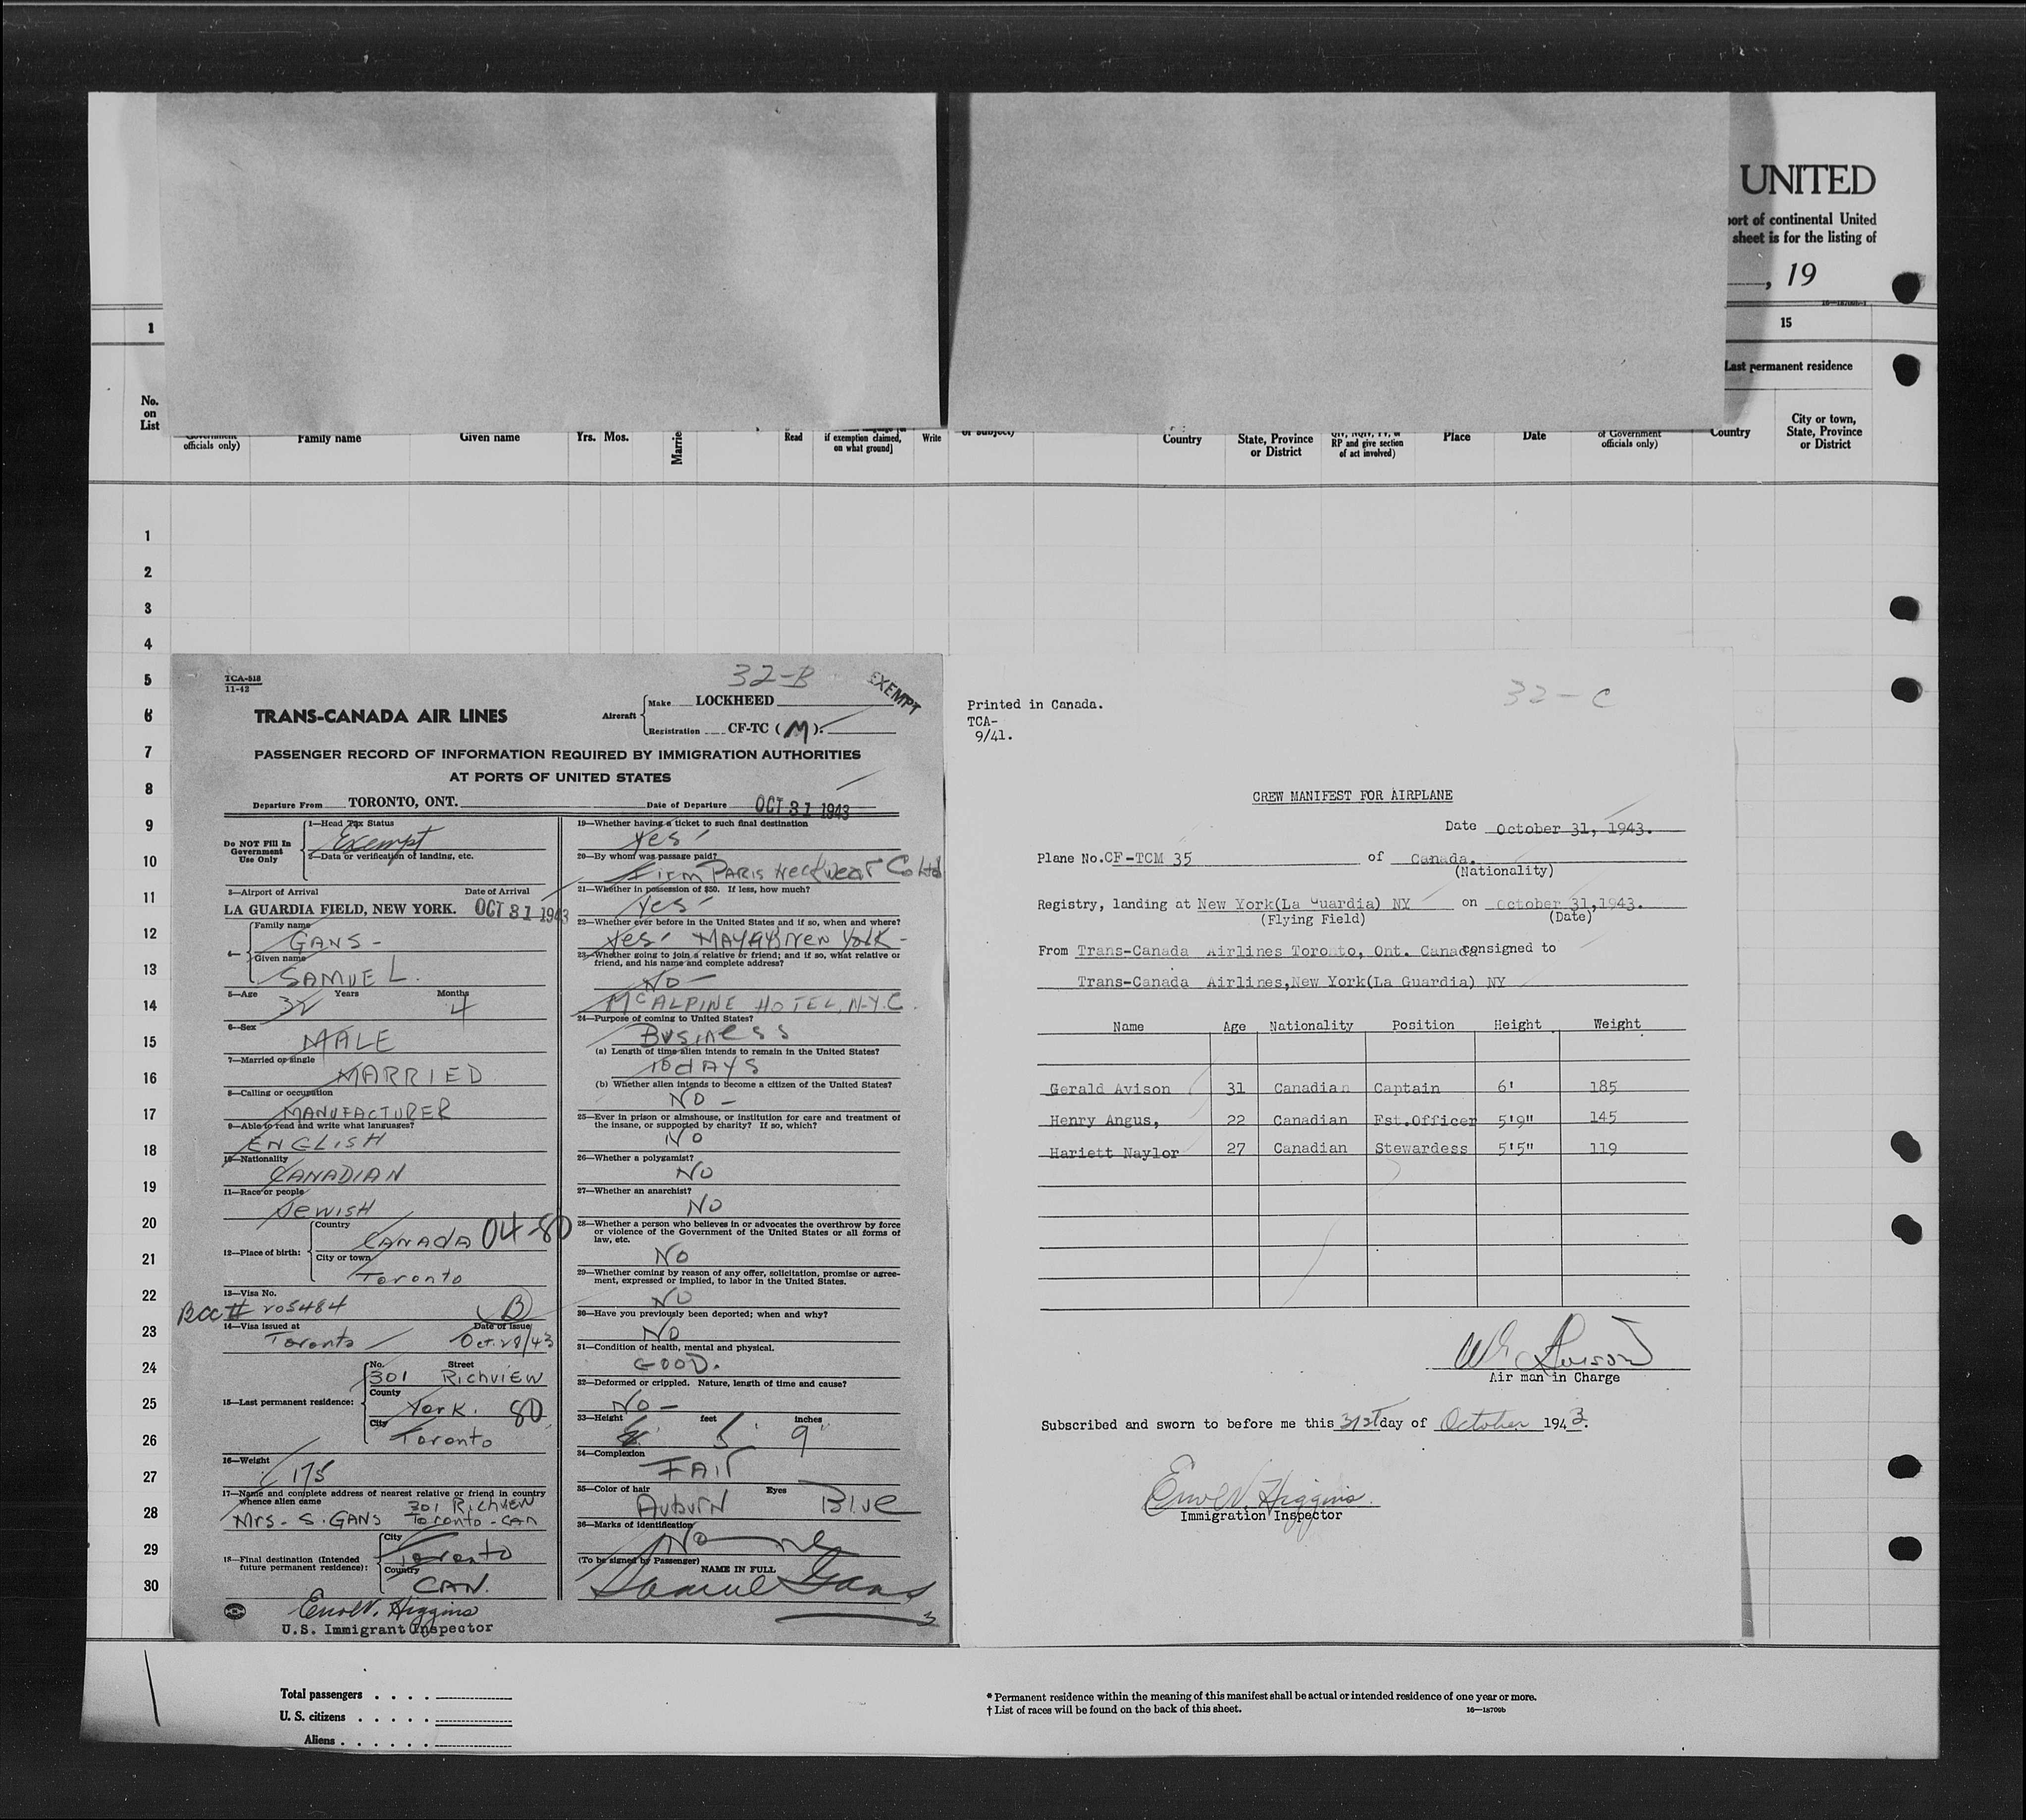 UNITED
port of continental United
sheet is for the listing of
, 19
1
15
Last permanent residence
No.
on
List
officials only)
Family name
Given name
Yrs. Mos.
Read
if exemption claimed,
on what ground]
Write
of subject)
Country
State, Province
or District
RP and give section
of act involved)
Place
Date
of Government
officials only)
Country
City or town,
State, Province
or District
1
2
3
4
5
6
7
8
9
10
11
12
13
14
15
16
17
18
19
20
21
22
23
24
25
26
27
28
29
30
TCA-518
11-42
32-B
EXEMPT
TRANS-CANADA AIR LINES
Aircraft
Make LOCKHEED
Registration CF-TC (M).
PASSENGER RECORD OF INFORMATION REQUIRED BY IMMIGRATION AUTHORITIES
AT PORTS OF UNITED STATES
Departure From TORONTO, ONT. Date of Departure OCT 31 1943
Do NOT Fill In
Government
Use Only
1—Head Tax Status
Exempt
2—Data or verification of landing, etc.
3—Airport of Arrival Date of Arrival
LA GUARDIA FIELD, NEW YORK. OCT 31 1943
4—
Family name
GANS -
Given name
SAMUEL.
5—Age Years Months
32 4
6—Sex
MALE
7—Married or single
MARRIED
8—Calling or occupation
MANUFACTURER
9—Able to read and write what languages?
ENGLISH
10—Nationality
CANADIAN
11—Race or people
JEWISH
12—Place of birth:
Country
CANADA 04-80
City or town
Toronto
13—Visa No.
BCC # 205484 B
14—Visa issued at Date of Issue
Toronto Oct. 28/43
15—Last permanent residence:
No. Street
301 RICHVIEW
County
York. 80
City
Toronto
16—Weight
175
17—Name and complete address of nearest relative or friend in country
whence alien came
301 RICHVIEW
Mrs - S. GANS Toronto - CAN
18—Final destination (Intended
future permanent residence):
City
Toronto
Country
CAN.
Errol V. Higgins
U.S. Immigrant Inspector
19—Whether having a ticket to such final destination
Yes
20—By whom was passage paid?
Firm PARIS Neckwear Co Ltd
21—Whether in possession of $50. If less, how much?
Yes
22—Whether ever before in the United States and if so, when and where?
Yes MAY 43 New York -
23—Whether going to join a relative or friend; and if so, what relative or
friend, and his name and complete address?
NO -
McALPINE HOTEL, N.Y.C.
24—Purpose of coming to United States?
Business
(a) Length of time alien intends to remain in the United States?
10 dAYS
(b) Whether alien intends to become a citizen of the United States?
NO -
25—Ever in prison or almshouse, or institution for care and treatment of
the insane, or supported by charity? If so, which?
No
26—Whether a polygamist?
No
27—Whether an anarchist?
No
28—Whether a person who believes in or advocates the overthrow by force
or violence of the Government of the United States or all forms of
law, etc.
No
29—Whether coming by reason of any offer, solicitation, promise or agree-
ment, expressed or implied, to labor in the United States.
No
30—Have you previously been deported; when and why?
No
31—Condition of health, mental and physical.
GOOD.
32—Deformed or crippled. Nature, length of time and cause?
No -
33—Height feet inches
5 9
34—Complexion
FAIR
35—Color of hair Eyes
AUBURN BLUE
36—Marks of identification
None
(To be signed by Passenger)
NAME IN FULL
Samuel Gans
3
Printed in Canada.
TCA-
9/41.
32 - C
CREW MANIFEST FOR AIRPLANE
Date October 31, 1943.
Plane No. CF-TCM 35 of Canada.
(Nationality)
Registry, landing at New York(La Guardia) NY on October 31,1943.
(Flying Field) (Date)
From Trans-Canada Airlines Toronto, Ont. Canada consigned to
Trans-Canada Airlines,New York(La Guardia) NY
Name Age Nationality Position Height Weight
Gerald Avison 31 Canadian Captain 6' 185
Henry Angus, 22 Canadian Fst.Officer 5'9" 145
Hariett Naylor 27 Canadian Stewardess 5'5" 119
Air man in Charge
Subscribed and sworn to before me this 31st day of October 1943.
Errol V. Higgins
Immigration Inspector
Total passengers
U. S. citizens
Aliens
* Permanent residence within the meaning of this manifest shall be actual or intended residence of one year or more.
† List of races will be found on the back of this sheet.
16—18709b